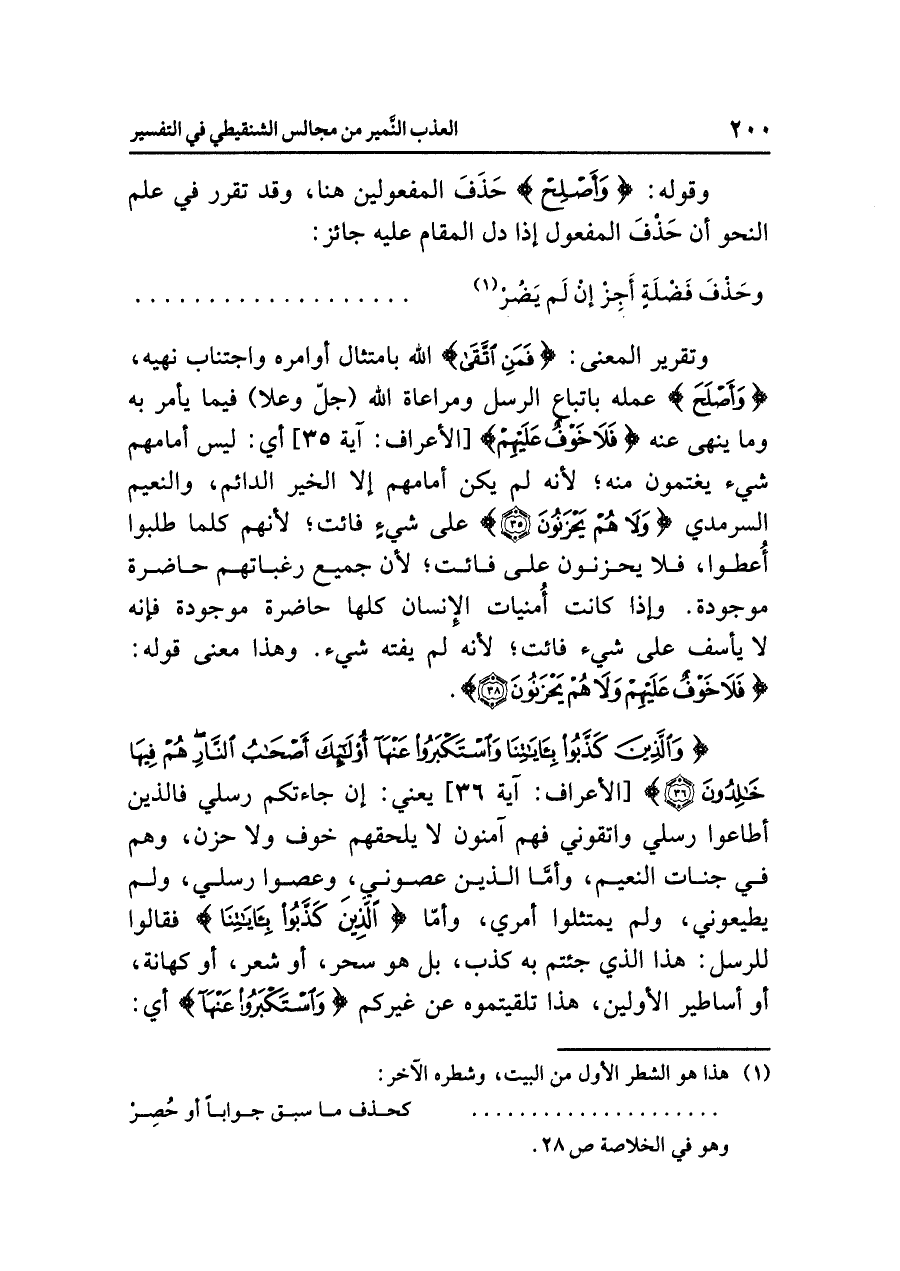 ٢٠٠ العذب النَّمير من مجالس الشنقيطي في التفسير
وقوله: ﴿ وَأَصْلِحْ ﴾ حَذَفَ المفعولين هنا، وقد تقرر في علم
النحو أن حَذْفَ المفعول إذا دل المقام عليه جائز:
وحَذْفَ فَضْلَةٍ أَجِزْ إنْ لَم يَضُرْ(١) . . . . . . . . . . . . . . . . . . .
وتقرير المعنى: ﴿ فَمَنِ ٱتَّقَىٰ﴾ الله بامتثال أوامره واجتناب نهيه،
﴿ وَأَصْلَحَ ﴾ عمله باتباع الرسل ومراعاة الله (جلّ وعلا) فيما يأمر به
وما ينهى عنه ﴿ فَلَا خَوْفٌ عَلَيْهِمْ﴾ [الأعراف: آية ٣٥] أي: ليس أمامهم
شيء يغتمون منه؛ لأنه لم يكن أمامهم إلا الخير الدائم، والنعيم
السرمدي ﴿ وَلَا هُمْ يَحْزَنُونَ ٣٥﴾ على شيءٍ فائت؛ لأنهم كلما طلبوا
أُعطوا، فلا يحزنون على فائت؛ لأن جميع رغباتهم حاضرة
موجودة. وإذا كانت أُمنيات الإِنسان كلها حاضرة موجودة فإنه
لا يأسف على شيء فائت؛ لأنه لم يفته شيء. وهذا معنى قوله:
﴿ فَلَا خَوْفٌ عَلَيْهِمْ وَلَا هُمْ يَحْزَنُونَ ٣٨﴾.
﴿ وَٱلَّذِينَ كَذَّبُوا۟ بِـَٔايَـٰتِنَا وَٱسْتَكْبَرُوا۟ عَنْهَآ أُو۟لَـٰٓئِكَ أَصْحَـٰبُ ٱلنَّارِ ۖ هُمْ فِيهَا
خَـٰلِدُونَ ٣٦﴾ [الأعراف: آية ٣٦] يعني: إن جاءتكم رسلي فالذين
أطاعوا رسلي واتقوني فهم آمنون لا يلحقهم خوف ولا حزن، وهم
في جنات النعيم، وأمَّا الذين عصوني، وعصوا رسلي، ولم
يطيعوني، ولم يمتثلوا أمري، وأمّا ﴿ ٱلَّذِينَ كَذَّبُوا۟ بِـَٔايَـٰتِنَا ﴾ فقالوا
للرسل: هذا الذي جئتم به كذب، بل هو سحر، أو شعر، أو كهانة،
أو أساطير الأولين، هذا تلقيتموه عن غيركم ﴿ وَٱسْتَكْبَرُوا۟ عَنْهَآ﴾ أي:
(١) هذا هو الشطر الأول من البيت، وشطره الآخر:
. . . . . . . . . . . . . . . . . . . . . كحذف ما سبق جواباً أو حُصِرْ
وهو في الخلاصة ص ٢٨.